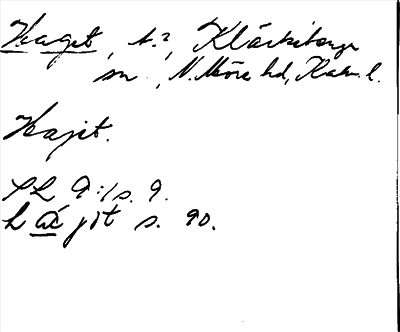 Haget, t.?, Kläckeberga
sn, N. Möre hd, Kalm. l.
Hajet.
SL 9:1 s. 9.
hàjət s. 90.